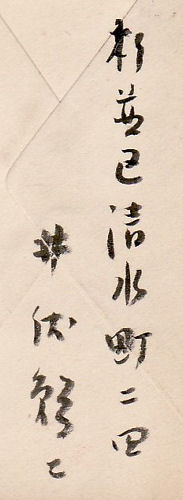 杉並区清水町二四
井伏鱒二